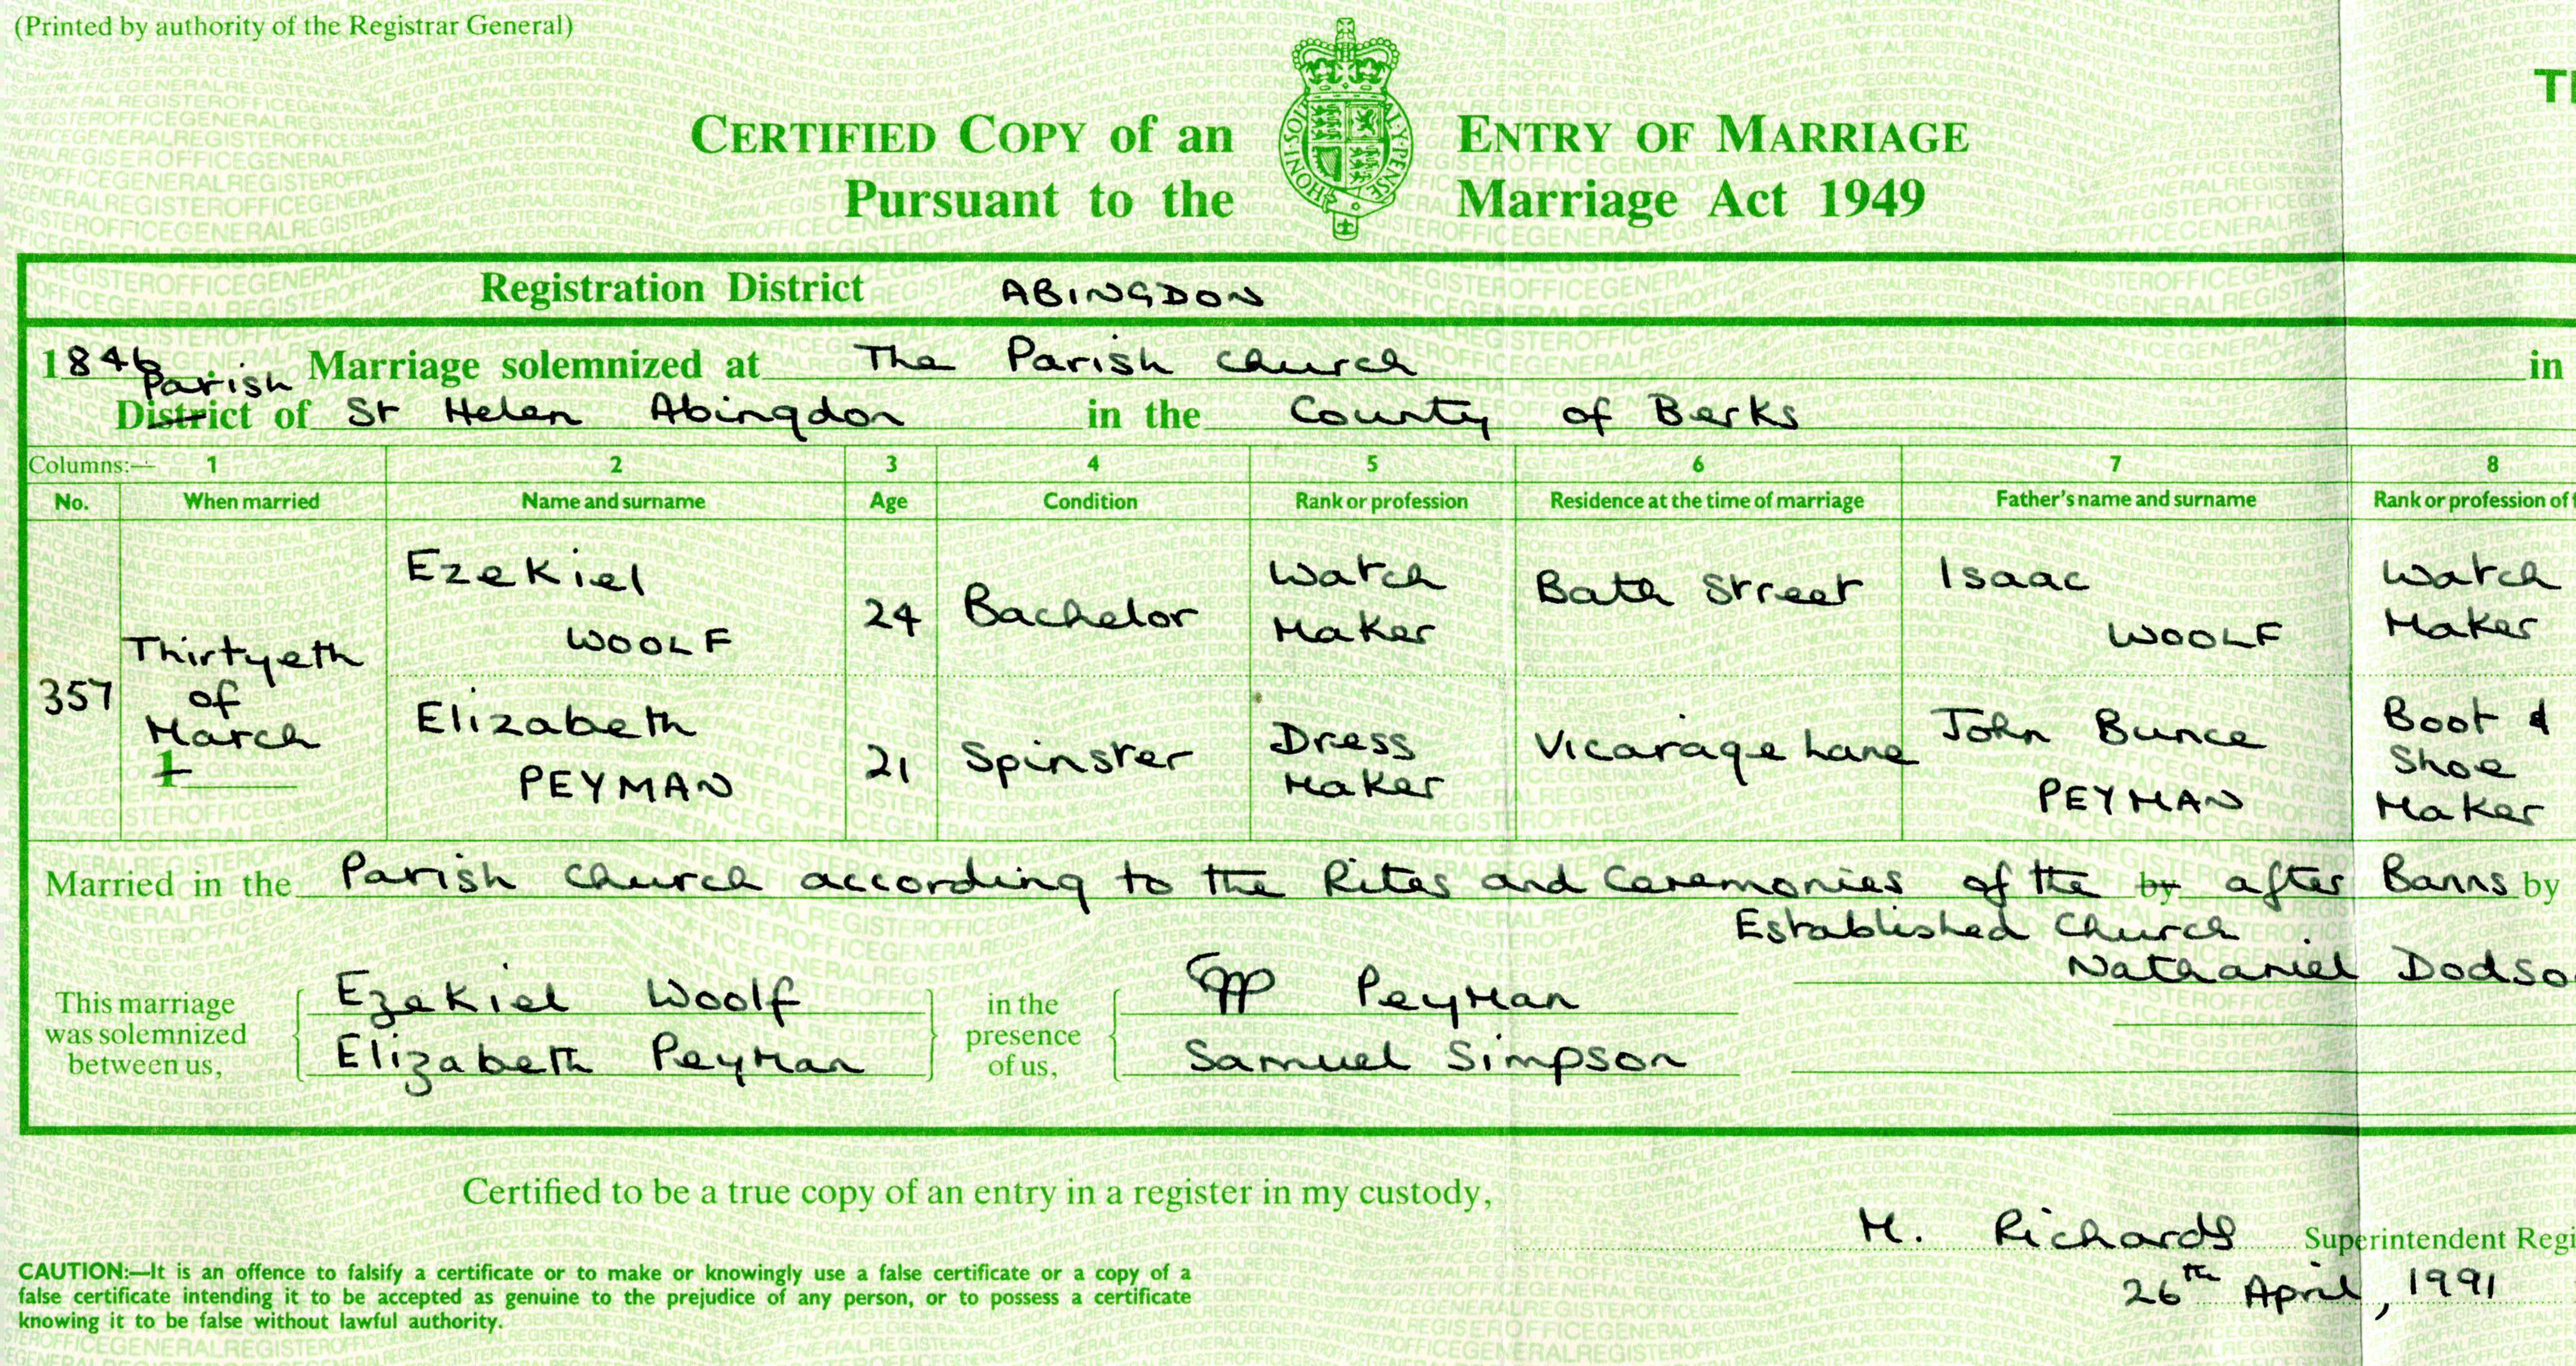 (Printed by authority of the Registrar General)
CERTIFIED COPY of an ENTRY OF MARRIAGE
Pursuant to the Marriage Act 1949
HONI·SOIT AL·Y·PENSE
Registration District ABINGDON
1846 Marriage solemnized at The Parish Church in
Parish
District of St Helen Abingdon in the County of Berks
Columns:— 1 2 3 4 5 6 7 8
No. When married Name and surname Age Condition Rank or profession Residence at the time of marriage Father's name and surname Rank or profession of
357 Thirtyeth of March 1
Ezekiel WOOLF 24 Bachelor Watch Maker Bath Street Isaac WOOLF Watch Maker
Elizabeth PEYMAN 21 Spinster Dress Maker Vicarage Lane John Bunce PEYMAN Boot & Shoe Maker
Married in the Parish Church according to the Rites and Ceremonies of the by after Banns by
Established Church
Nathaniel Dodso
This marriage was solemnized between us,
Ezekiel Woolf
Elizabeth Peyman
in the presence of us,
Peyman
Samuel Simpson
Certified to be a true copy of an entry in a register in my custody,
M. Richards Superintendent Regi
26th April, 1991
CAUTION:—It is an offence to falsify a certificate or to make or knowingly use a false certificate or a copy of a
false certificate intending it to be accepted as genuine to the prejudice of any person, or to possess a certificate
knowing it to be false without lawful authority.